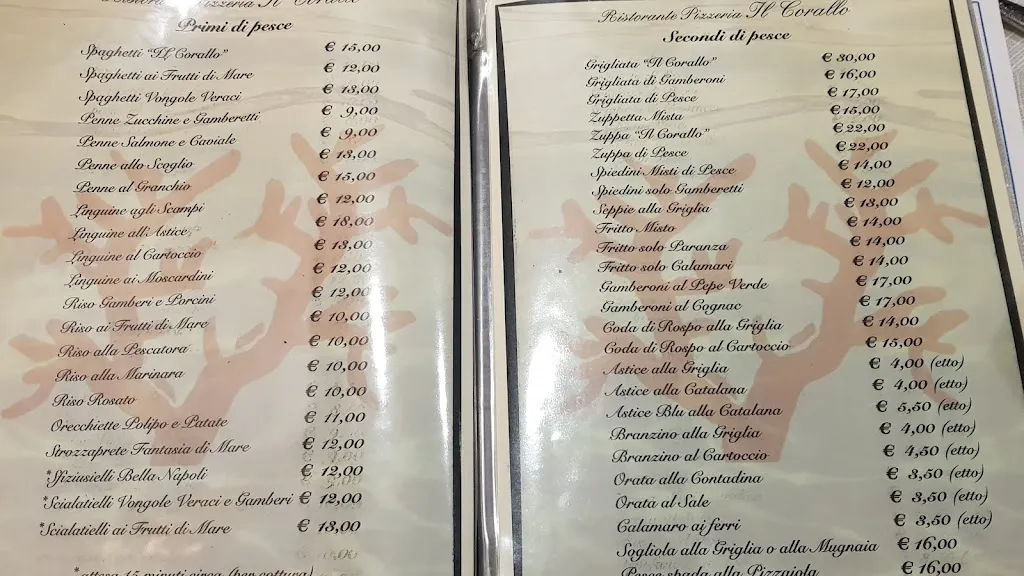 Ristorante Pizzeria Il Corallo
Primi di pesce
Spaghetti "Il Corallo" € 15,00
Spaghetti ai Frutti di Mare € 12,00
Spaghetti Vongole Veraci € 13,00
Penne Zucchine e Gamberetti € 9,00
Penne Salmone e Caviale € 9,00
Penne allo Scoglio € 13,00
Penne al Granchio € 15,00
Linguine agli Scampi € 12,00
Linguine all'Astice € 18,00
Linguine al Cartoccio € 13,00
Linguine ai Moscardini € 12,00
Riso Gamberi e Porcini € 12,00
Riso ai Frutti di Mare € 10,00
Riso alla Pescatora € 10,00
Riso alla Marinara € 10,00
Riso Rosato € 10,00
Orecchiette Polipo e Patate € 11,00
Strozzaprete Fantasia di Mare € 12,00
*Sfiziusielli Bella Napoli € 12,00
*Scialatielli Vongole Veraci e Gamberi € 12,00
*Scialatielli ai Frutti di Mare € 13,00
*attesa 15 minuti circa (per cottura)
Ristorante Pizzeria Il Corallo
Secondi di pesce
Grigliata "Il Corallo" € 30,00
Grigliata di Gamberoni € 16,00
Grigliata di Pesce € 17,00
Zuppetta Mista € 15,00
Zuppa "Il Corallo" € 22,00
Zuppa di Pesce € 22,00
Spiedini Misti di Pesce € 14,00
Spiedini solo Gamberetti € 12,00
Seppie alla Griglia € 13,00
Fritto Misto € 14,00
Fritto solo Paranza € 14,00
Fritto solo Calamari € 14,00
Gamberoni al Pepe Verde € 17,00
Gamberoni al Cognac € 17,00
Coda di Rospo alla Griglia € 14,00
Coda di Rospo al Cartoccio € 15,00
Astice alla Griglia € 4,00 (etto)
Astice alla Catalana € 4,00 (etto)
Astice Blu alla Catalana € 5,50 (etto)
Branzino alla Griglia € 4,00 (etto)
Branzino al Cartoccio € 4,50 (etto)
Orata alla Contadina € 3,50 (etto)
Orata al Sale € 3,50 (etto)
Calamaro ai ferri € 3,50 (etto)
Sogliola alla Griglia o alla Mugnaia € 16,00
Pesce spada alla Pizzaiola € 16,00